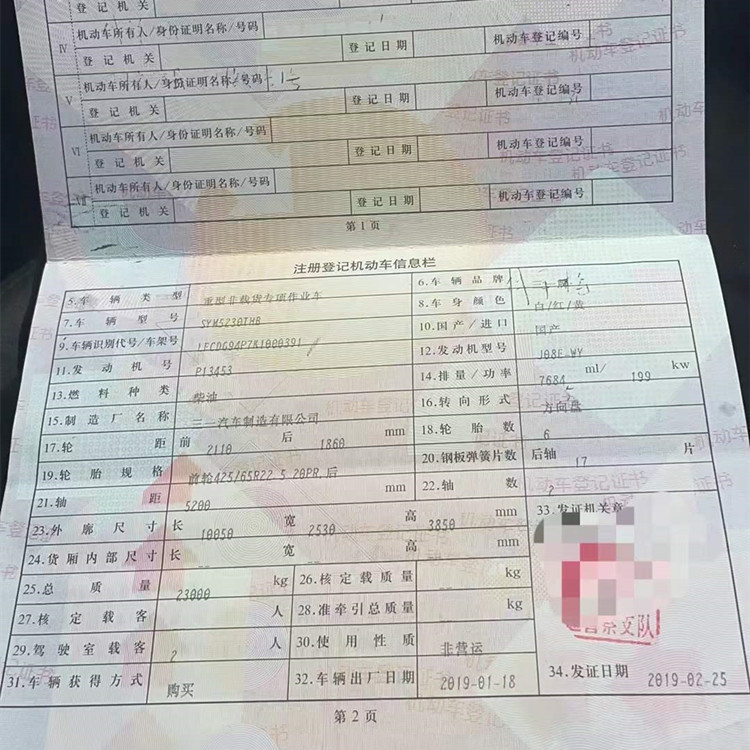 登记机关
IV 机动车所有人/身份证明名称/号码
登记机关 登记日期 机动车登记编号
V 机动车所有人/身份证明名称/号码
登记机关 登记日期 机动车登记编号
VI 机动车所有人/身份证明名称/号码
登记机关 登记日期 机动车登记编号
VII 机动车所有人/身份证明名称/号码
登记机关 登记日期 机动车登记编号
第1页
注册登记机动车信息栏
5.车辆类型 重型非载货专项作业车 6.车辆品牌
7.车辆型号 SYM5230THB 8.车身颜色 白/红/黄
9.车辆识别代号/车架号 10.国产/进口 国产
11.发动机号 P13453 12.发动机型号
13.燃料种类 柴油 14.排量/功率 7684 ml/ 199 kw
15.制造厂名称 三一汽车制造有限公司 16.转向形式 方向盘
17.轮距 前 2110 后 1860 mm 18.轮胎数 6
19.轮胎规格 前轮425/65R22.5 20PR,后 20.钢板弹簧片数 后轴 17 片
21.轴距 5200 mm 22.轴数 2
23.外廓尺寸 长 10050 宽 2530 高 3850 mm 33.发证机关章
24.货厢内部尺寸 长 -- 宽 -- 高 -- mm
25.总质量 23000 kg 26.核定载质量 -- kg
27.核定载客 -- 人 28.准牵引总质量 -- kg
29.驾驶室载客 2 人 30.使用性质 非营运
31.车辆获得方式 购买 32.车辆出厂日期 2019-01-18 34.发证日期 2019-02-25
支队